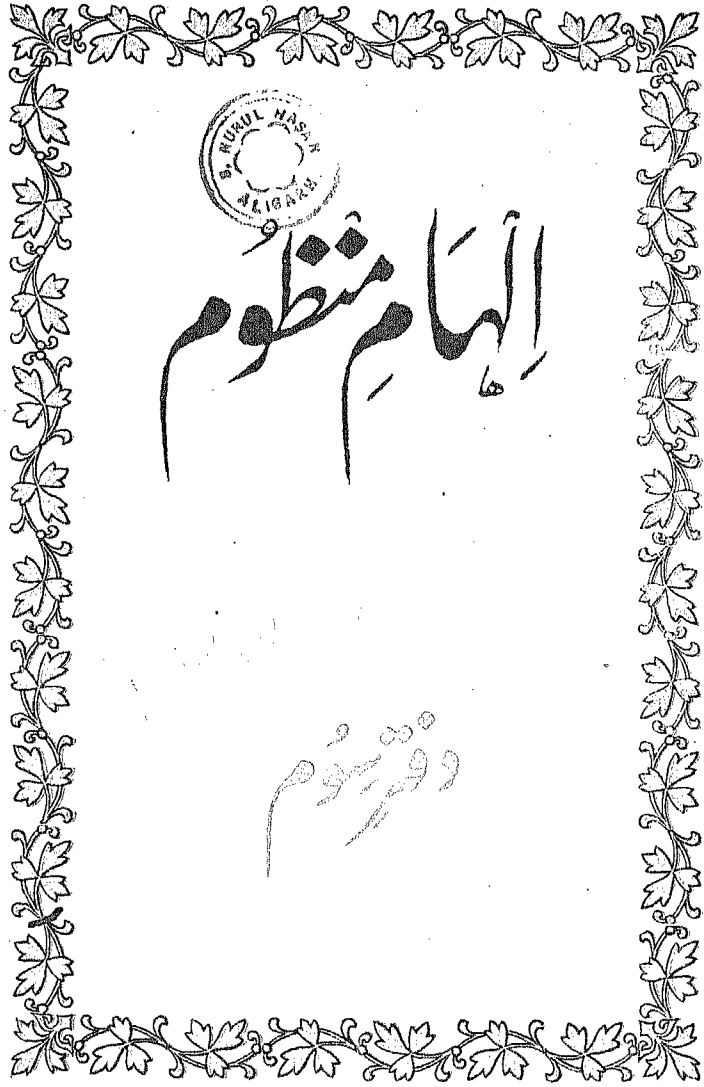 S. NURUL HASAN
ALIGARH.
اِلہَامِ مَنظُوم
دفترِ سوُم